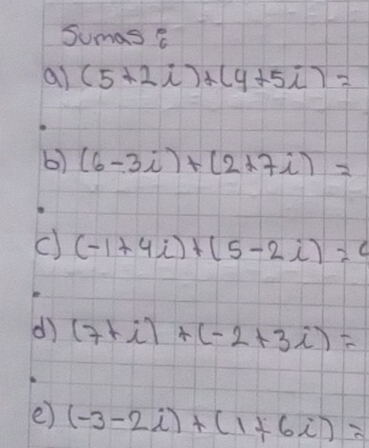 Sumas:
a) (5+2i)+(4+5i)=
b) (6-3i)+(2+7i)=
c) (-1+4i)+(5-2i)=
d) (7+i)+(-2+3i)=
e) (-3-2i)+(1+6i)=